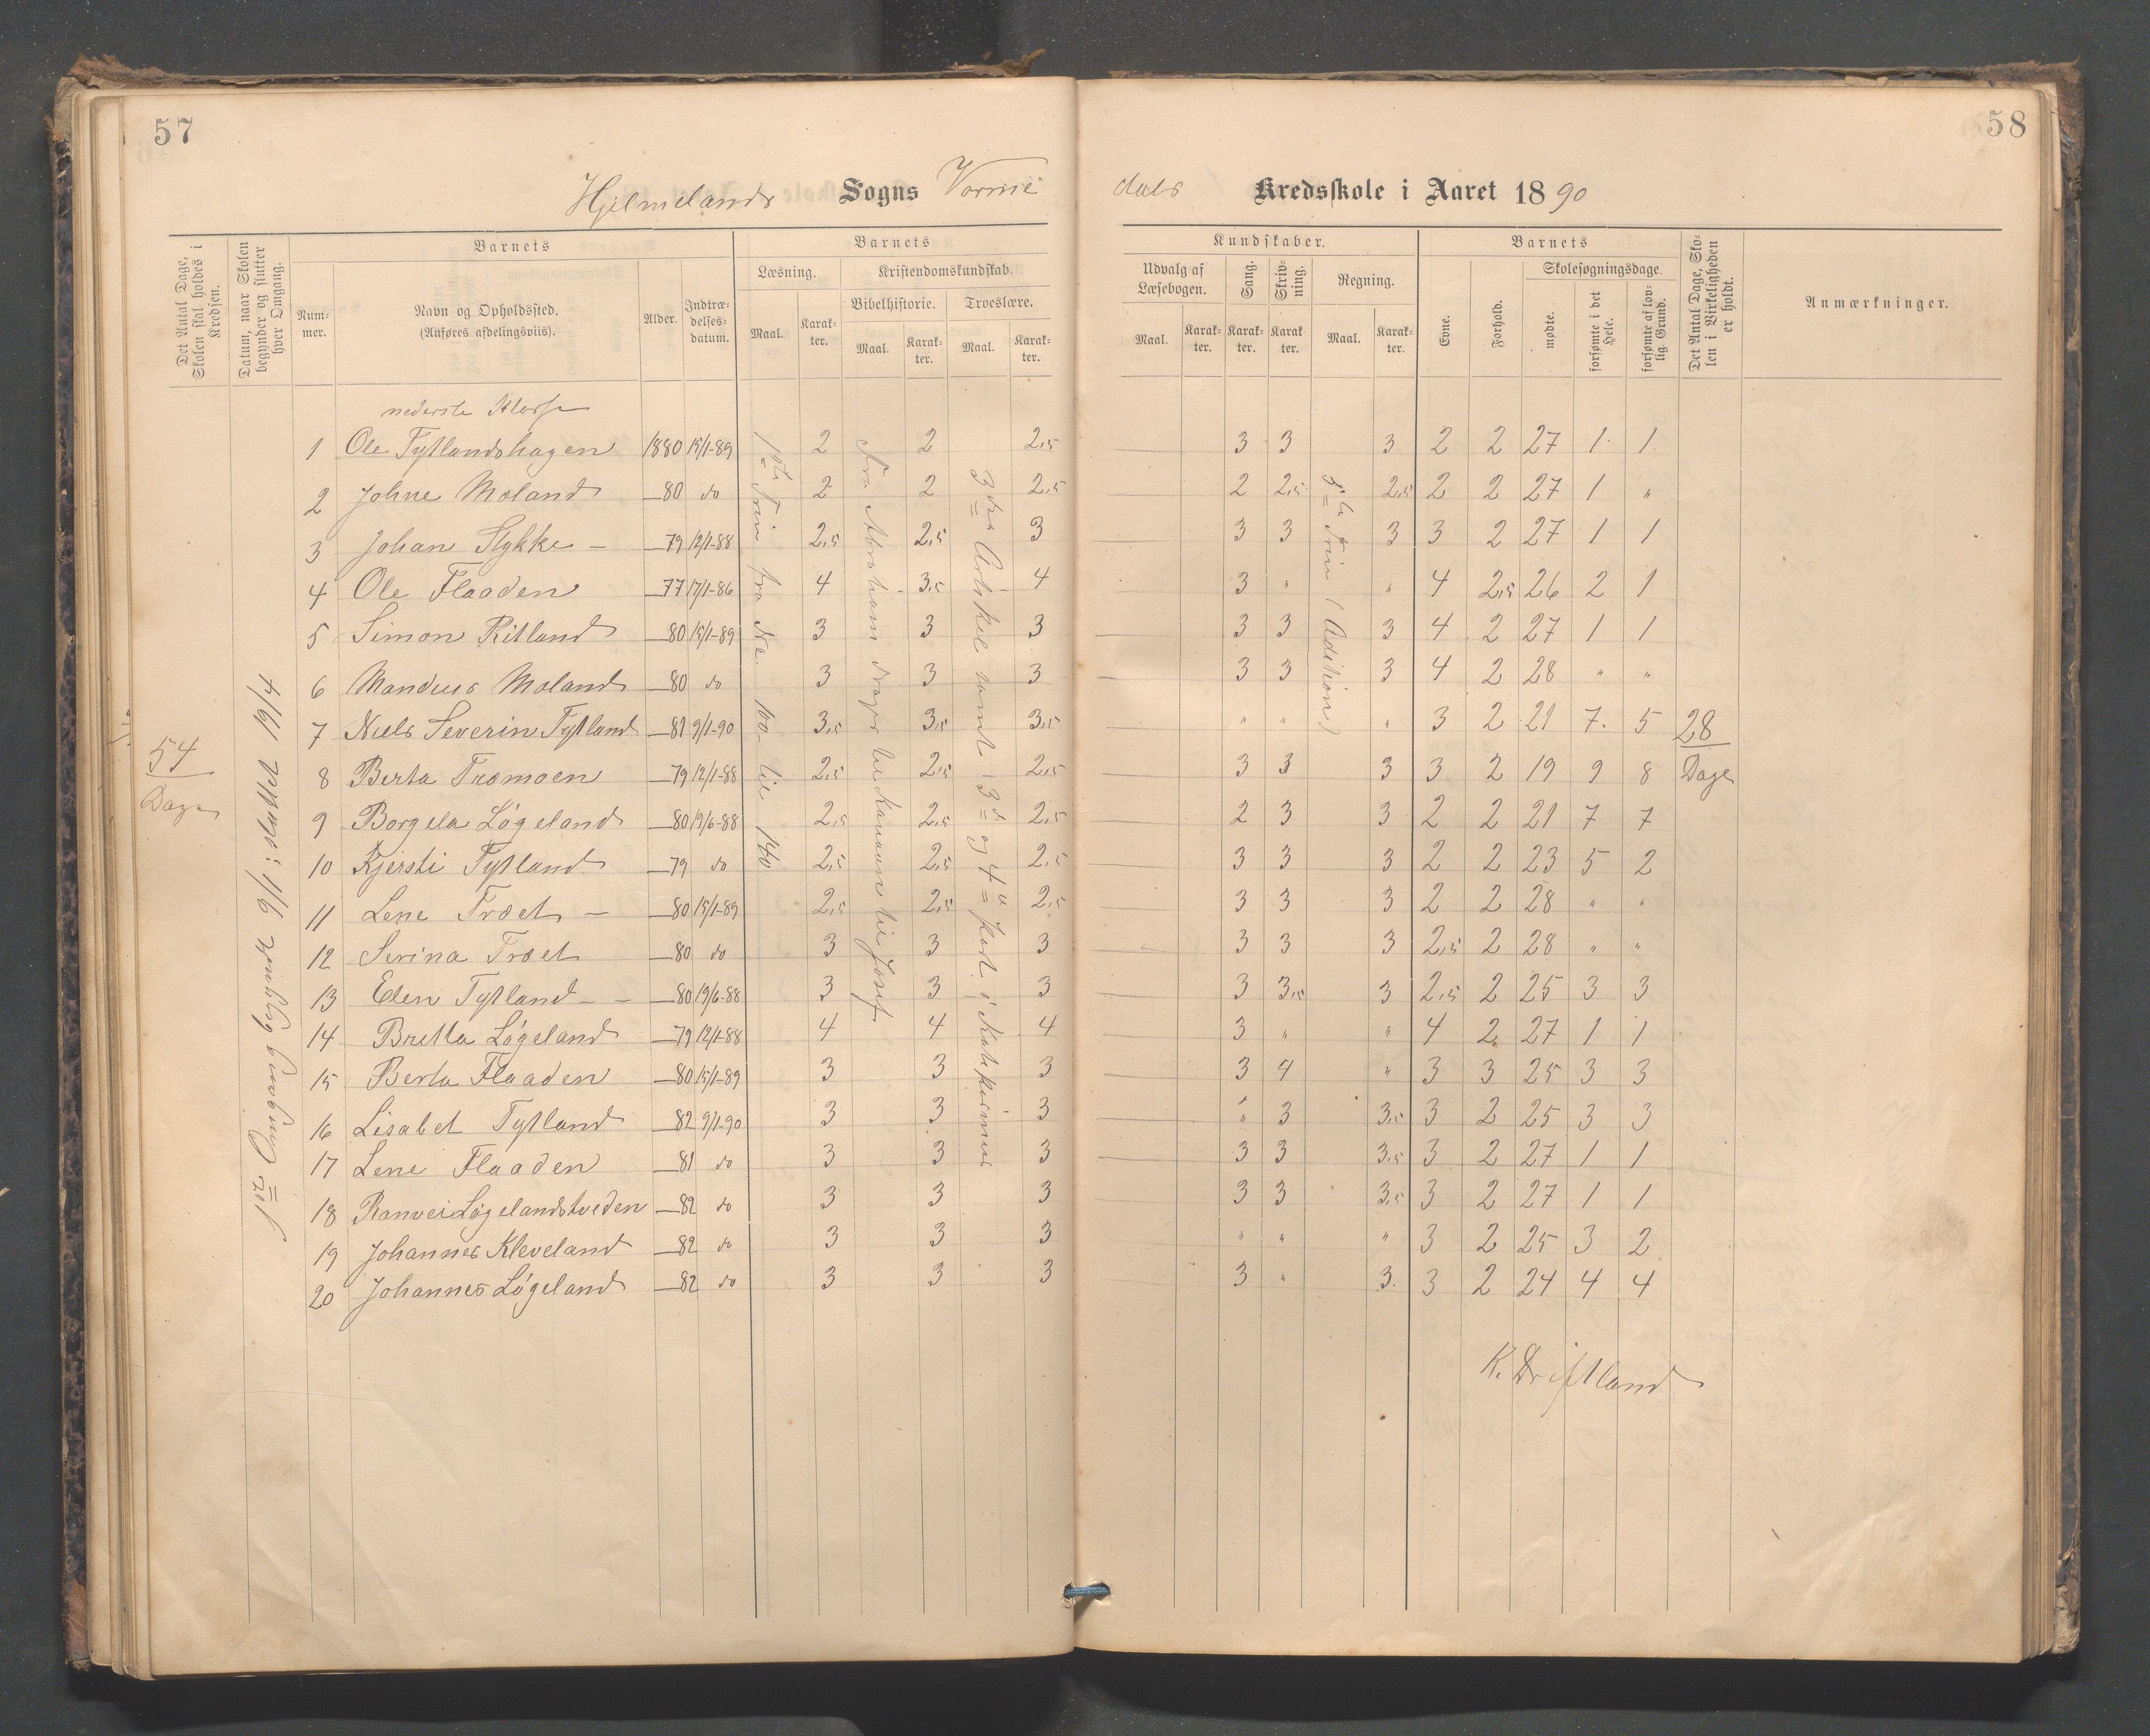 57
58
Hjelmelands Sogns Vorme
dals Kredsskole i Aaret 1890
Det Antal Dage, Skolen skal holdes i Kredsen.
Datum, naar Skolen begynder og slutter hver Omgang.
Barnets
Nummer.
Navn og Opholdssted.
(Anføres afdelingsviis).
Alder.
Indtrædelsesdatum.
Barnets
Læsning.
Maal.
Karakter.
Kristendomskundskab.
Bibelhistorie.
Maal.
Karakter.
Troeslære.
Maal.
Karakter.
Kundskaber.
Udvalg af Læsebogen.
Maal.
Karakter.
Sang.
Karakter.
Skrivning.
Karakter.
Regning.
Maal.
Karakter.
Barnets
Evne.
Forhold.
Skolesøgningsdage.
mødte.
forsømte i det Hele.
forsømte af lovlig Grund.
Det Antal Dage, Skolen i Virkeligheden er holdt.
Anmærkninger.
54
Dage
1ste Omgang begyndt 9/1; sluttet 19/4
nederste Klasse
1ste Trin fra No. 100 til 140
Fra Abraham drager til Kanaan til Josef
3die Artikel samt 3die og 4de Part i Katekismus
(Adition)
28
Dage
1 Ole Tytlandshagen 1880 15/1-89 2 2 2,5 3 3 3 2 2 27 1 1
2 Johne Moland —80 do 2 2 2,5 2 2,5 2,5 2 2 27 1 "
3 Johan Stykke — —79 12/1-88 2,5 2,5 3 3 3 3 3 2 27 1 1
4 Ole Flaaden —77 17/1-86 4 3,5 4 3 " " 4 2,5 26 2 1
5 Simon Ritland —80 15/1-89 3 3 3 3 3 3 4 2 27 1 1
6 Mandius Moland —80 do 3 3 3 3 3 3 4 2 28 " "
7 Niels Severin Tytland —81 9/1-90 3,5 3,5 3,5 " " " 3 2 21 7 5
8 Berta Træmoen —79 12/1-88 2,5 2,5 2,5 3 3 3 3 2 19 9 8
9 Borgela Løgeland —80 19/6-88 2,5 2,5 2,5 2 3 3 2 2 21 7 7
10 Kjersti Tytland —79 do 2,5 2,5 2,5 3 3 3 2 2 23 5 2
11 Lene Træet — —80 15/1-89 2,5 2,5 2,5 3 3 3 2 2 28 " "
12 Serina Træet —80 do 3 3 3 3 3 3 2,5 2 28 " "
13 Elen Tytland — — —80 19/6-88 3 3 3 3 3,5 3 2,5 2 25 3 3
14 Britta Løgeland —79 12/1-88 4 4 4 3 " " 4 2 27 1 1
15 Berta Flaaden —80 15/1-89 3 3 3 3 4 " 3 3 25 3 3
16 Lisabet Tytland —82 9/1-90 3 3 3 " 3 3,5 3 2 25 3 3
17 Lene Flaaden —81 do 3 3 3 3 3 3,5 3 2 27 1 1
18 Ranvei Løgelandstveden —82 do 3 3 3 3 3 3,5 3 2 27 1 1
19 Johannes Kleveland —82 do 3 3 3 " " " 3 2 25 3 2
20 Johannes Løgeland —82 do 3 3 3 3 " 3 3 2 24 4 4